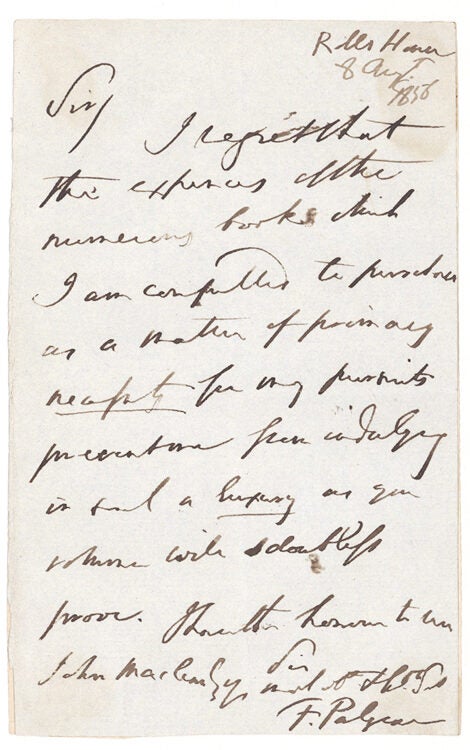 Rolls House
8 Augt
1856
Sir
I regret that
the expences of the
numerous books which
I am compelled to purchase
as a matter of primary
necessity for my pursuits
prevents me from indulging
in such a luxury as your
volume will doubtless
prove. I have the honour to be
Sir
John Maclean Esq
F. Palgrave